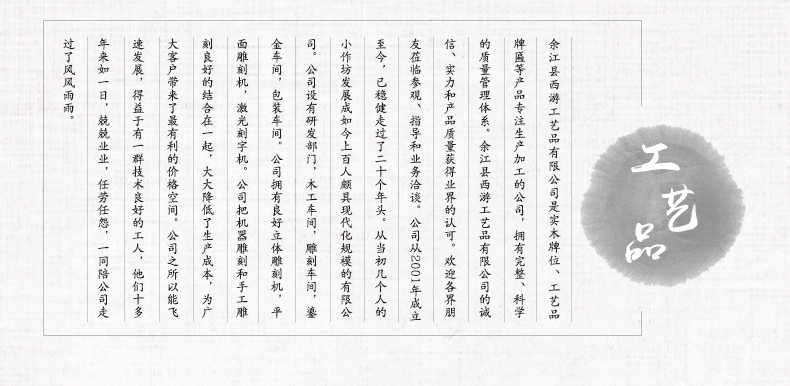 工艺品
余江县西游工艺品有限公司是实木牌位、工艺品
牌匾等产品专注生产加工的公司，拥有完整、科学
的质量管理体系。余江县西游工艺品有限公司的诚
信、实力和产品质量获得业界的认可。欢迎各界朋
友莅临参观、指导和业务洽谈。公司从2001年成立
至今，已稳健走过了二十个年头。从当初几个人的
小作坊发展成如今上百人颇具现代化规模的有限公
司。公司设有研发部门，木工车间，雕刻车间，鎏
金车间，包装车间。公司拥有良好立体雕刻机，平
面雕刻机，激光刻字机。公司把机器雕刻和手工雕
刻良好的结合在一起，大大降低了生产成本，为广
大客户带来了最有利的价格空间。公司之所以能飞
速发展，得益于有一群技术良好的工人，他们十多
年来如一日，兢兢业业，任劳任怨，一同陪公司走
过了风风雨雨。